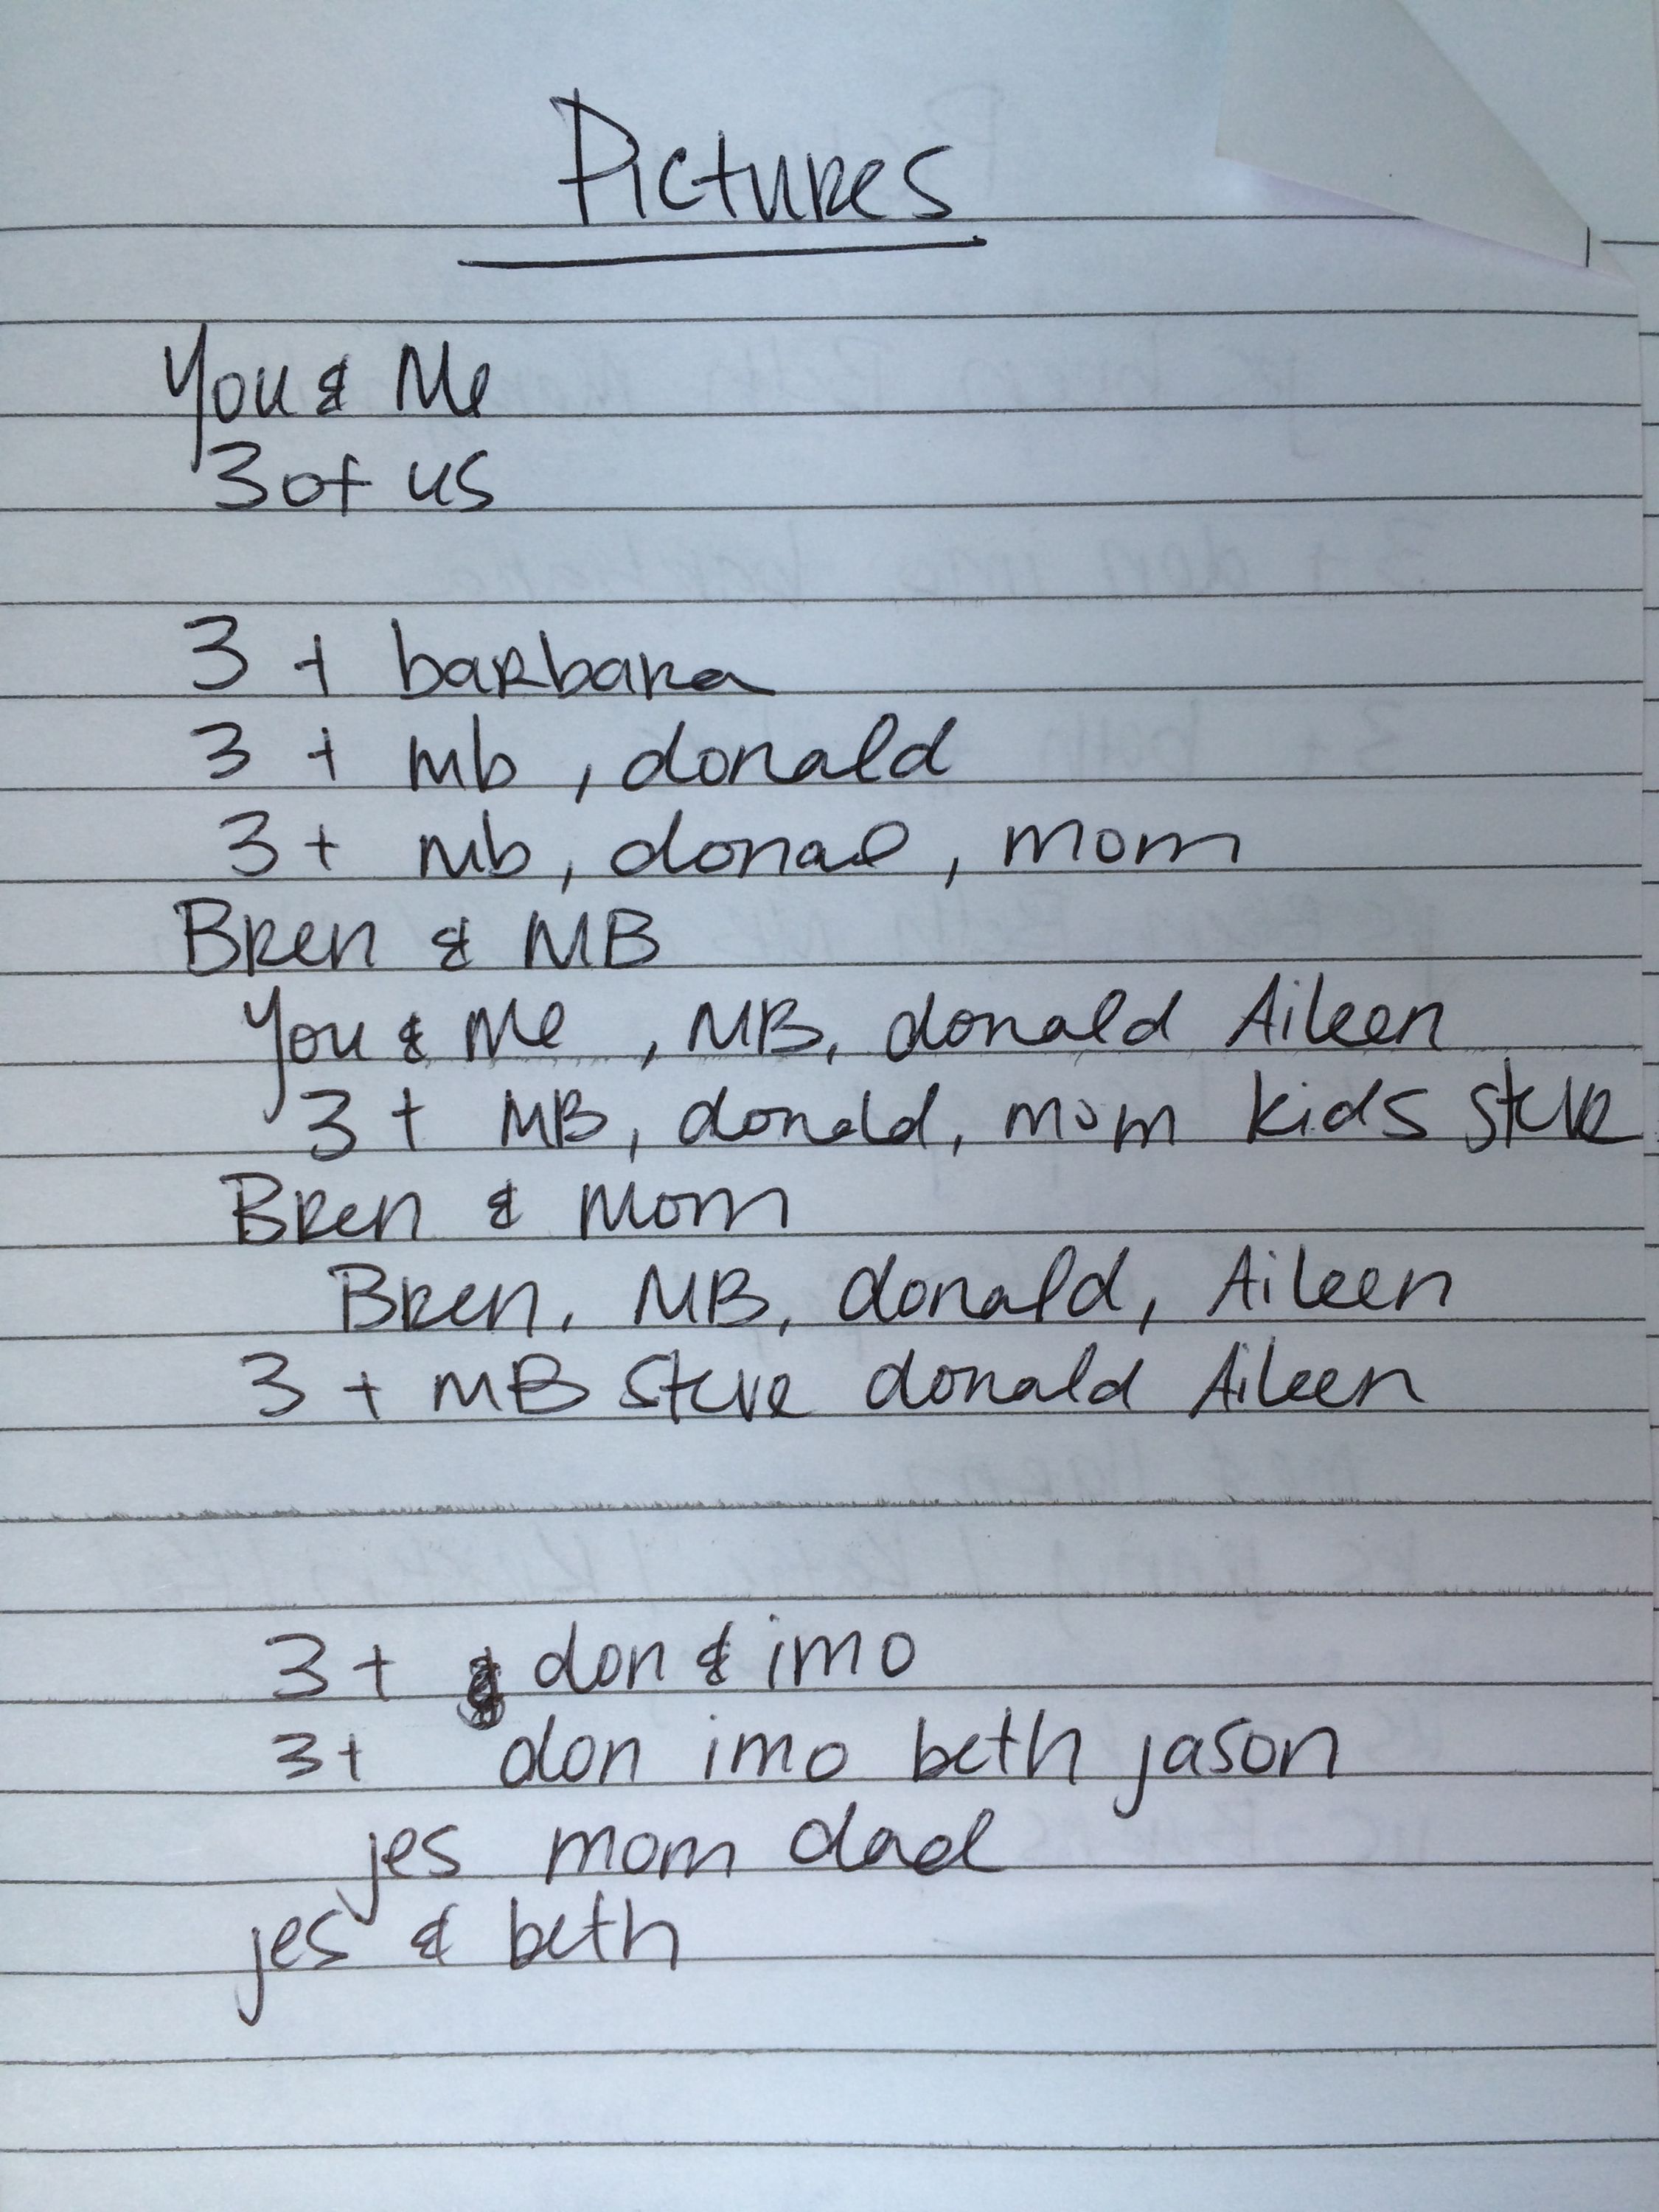 Pictures
You & Me
3 of us
3 + barbara
3 + mb, donald
3 + mb, donal, mom
Bren & MB
You & Me, MB, donald Aileen
3 + MB, donald, mom kids steve
Bren & Mom
Bren, MB, donald, Aileen
3 + MB Steve donald Aileen
3 + don & imo
3 + don imo beth jason
jes mom dad
jes & beth